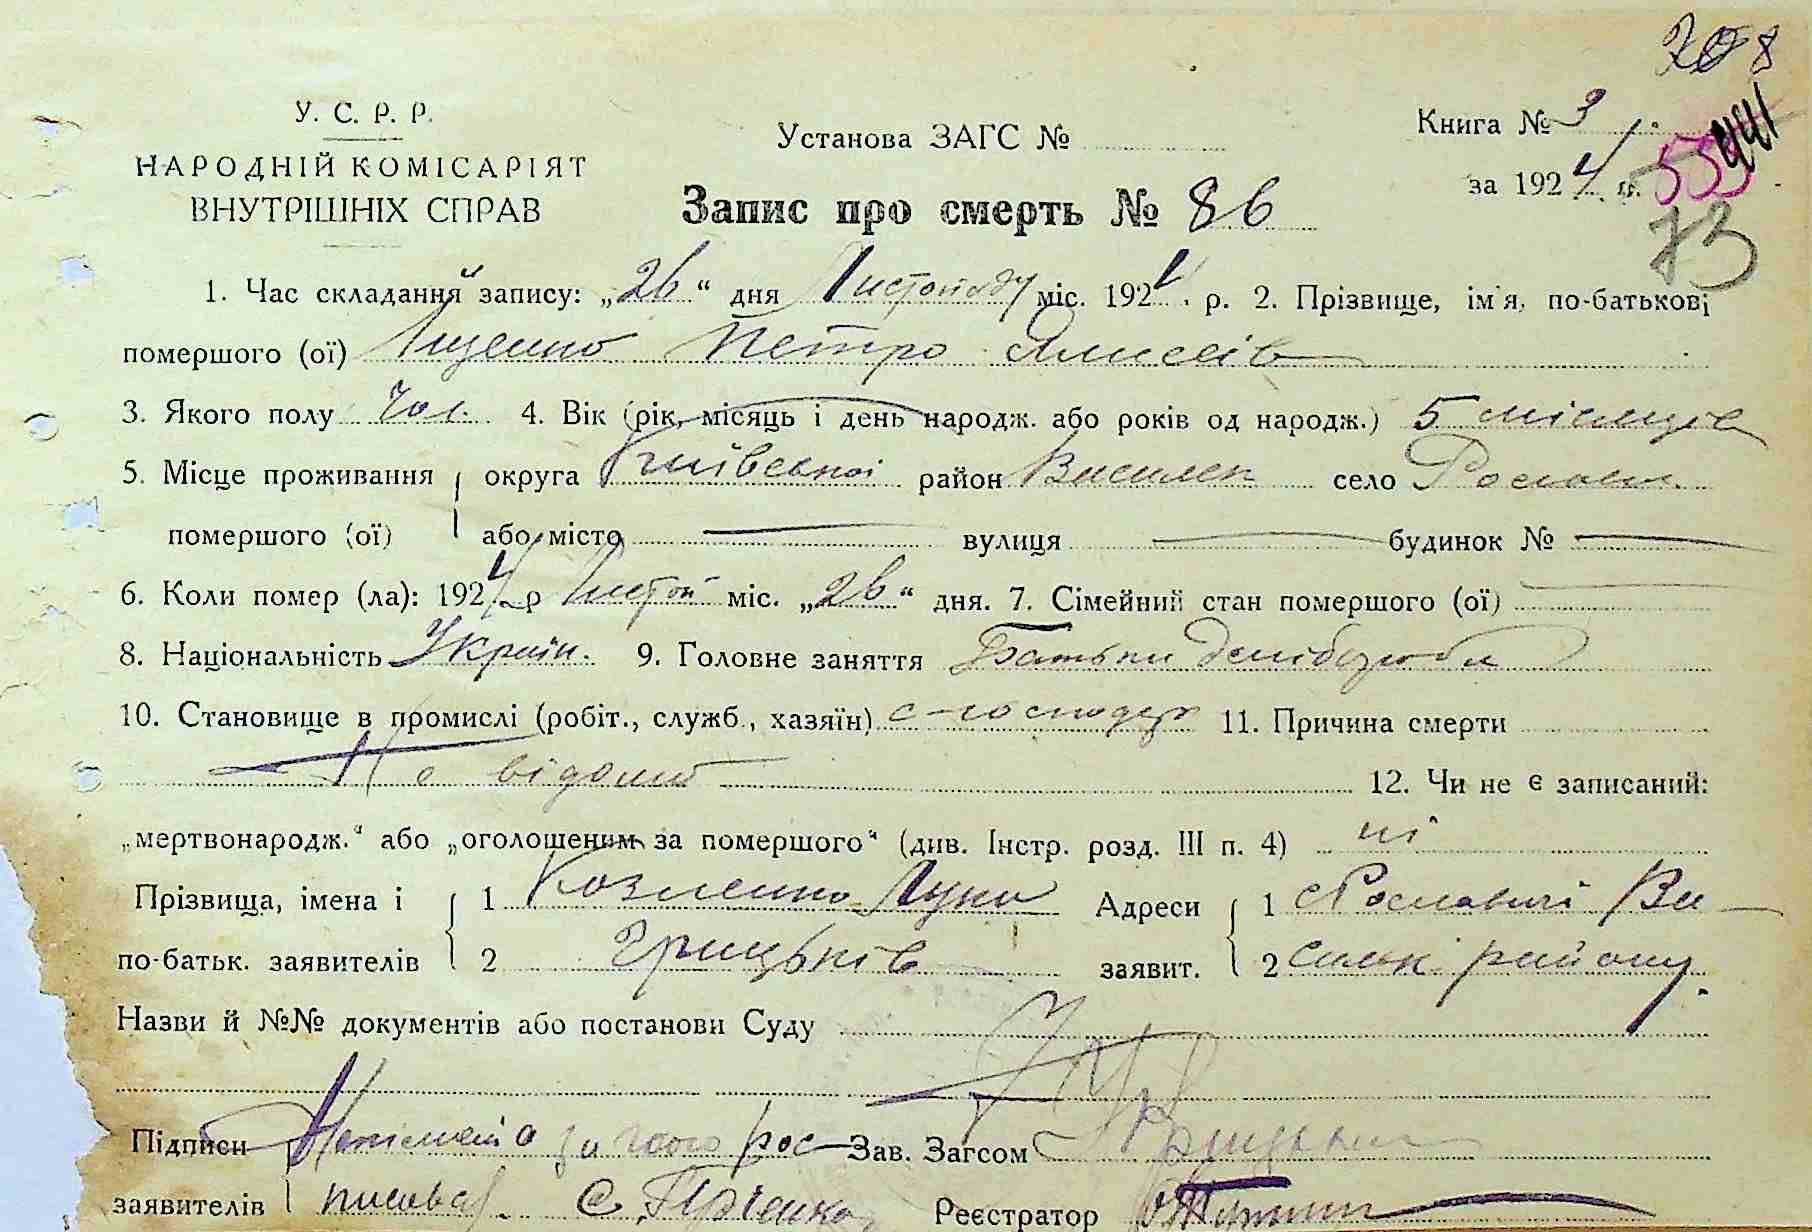 708
У. С. Р. Р.
НАРОДНІЙ КОМІСАРІЯТ
ВНУТРІШНІХ СПРАВ
Установа ЗАГС №
Книга № 3
за 1924 р.
441
73
Запис про смерть № 86
1. Час складання запису: „26“ дня Листопаду міс. 1924 р. 2. Прізвище, ім'я, по-батькові
помершого (ої) Іщенко Петро
3. Якого полу чол. 4. Вік (рік, місяць і день народж. або років од народж.) 5 місяців
5. Місце проживання округа Київської район Васильк село Рослав.
помершого (ої) або місто вулиця будинок №
6. Коли помер (ла): 1924 р Листоп міс. „26“ дня. 7. Сімейний стан помершого (ої)
8. Національність Україн. 9. Головне заняття Батьки хліборобы
10. Становище в промислі (робіт., служб., хазяїн) с-господар 11. Причина смерти
Не відомо 12. Чи не є записаний:
„мертвонародж.“ або „оголошеним за помершого“ (див. Інстр. розд. III п. 4) ні
Прізвища, імена і 1 Козленко Лука Адреси 1 с Рославичі Ва
по-батьк. заявителів 2 Грицьків заявит. 2 сильк. району.
Назви й №№ документів або постанови Суду
Підписи Неписьмен а за його рос Зав. Загсом
заявителів писовав. С. Реєстратор